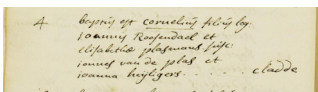 4 baptus est cornelius filius leg
joannis Roosendael et
elisabethæ plasmans susc:
joannes van de plas et
joanna heijligers ..... cladde